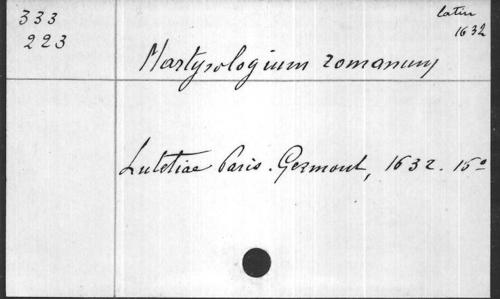 333
223
latin
1632
Martyrologium romanum
Lutetiae Paris. Germont, 1632. 16º